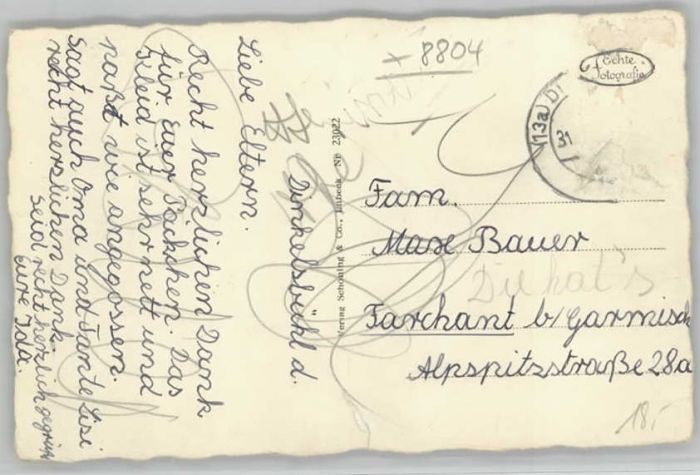 Dinkelsbühl d.
Liebe Eltern.
Recht herzlichen Dank
für Euer Päckchen. Das
Kleid ist sehr nett und
paßt wie angegossen.
Sagt auch Oma und Tante Lisi
recht herzlichen Dank.
Seid recht herzlich gegrüßt
eure Ida.
Verlag Schöning & Co., Lübeck Nr 23022
× 8804
Echte
Fotografie
(13a) Di
31
Fam.
Max Bauer
Die hat's
Farchant b/Garmisch
Alpspitzstraße 28a
18,-